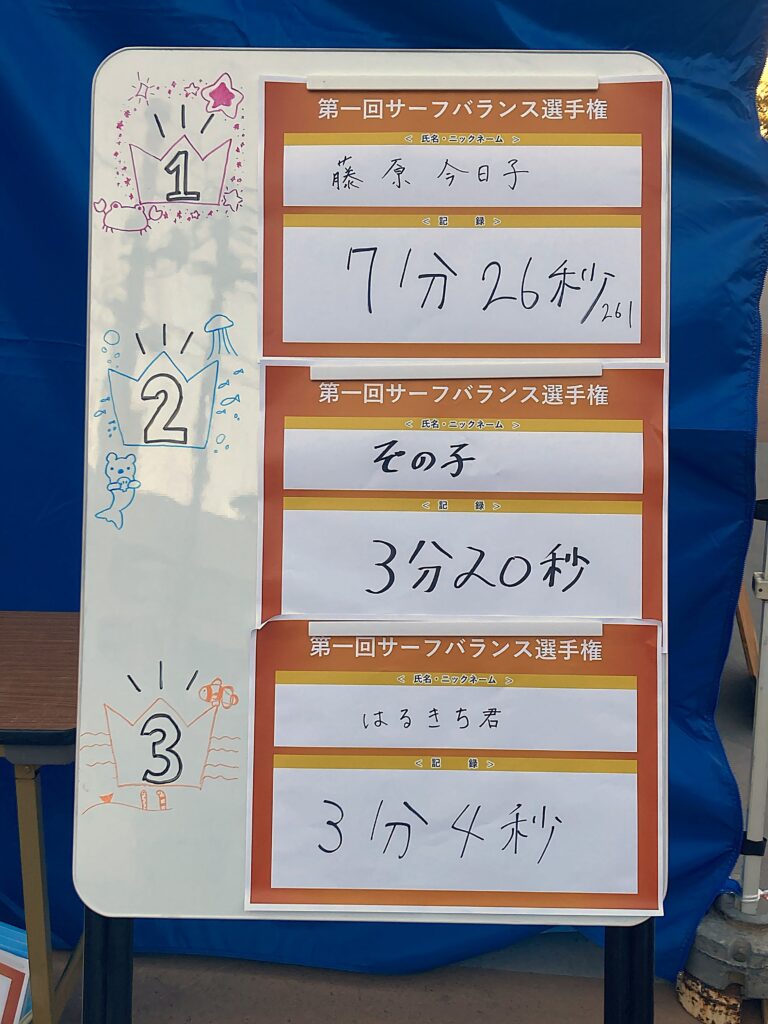 1
第一回サーフバランス選手権
< 氏名・ニックネーム >
藤原今日子
< 記 録 >
7分26秒261
2
第一回サーフバランス選手権
< 氏名・ニックネーム >
その子
< 記 録 >
3分20秒
3
第一回サーフバランス選手権
< 氏名・ニックネーム >
はるきち君
< 記 録 >
3分4秒